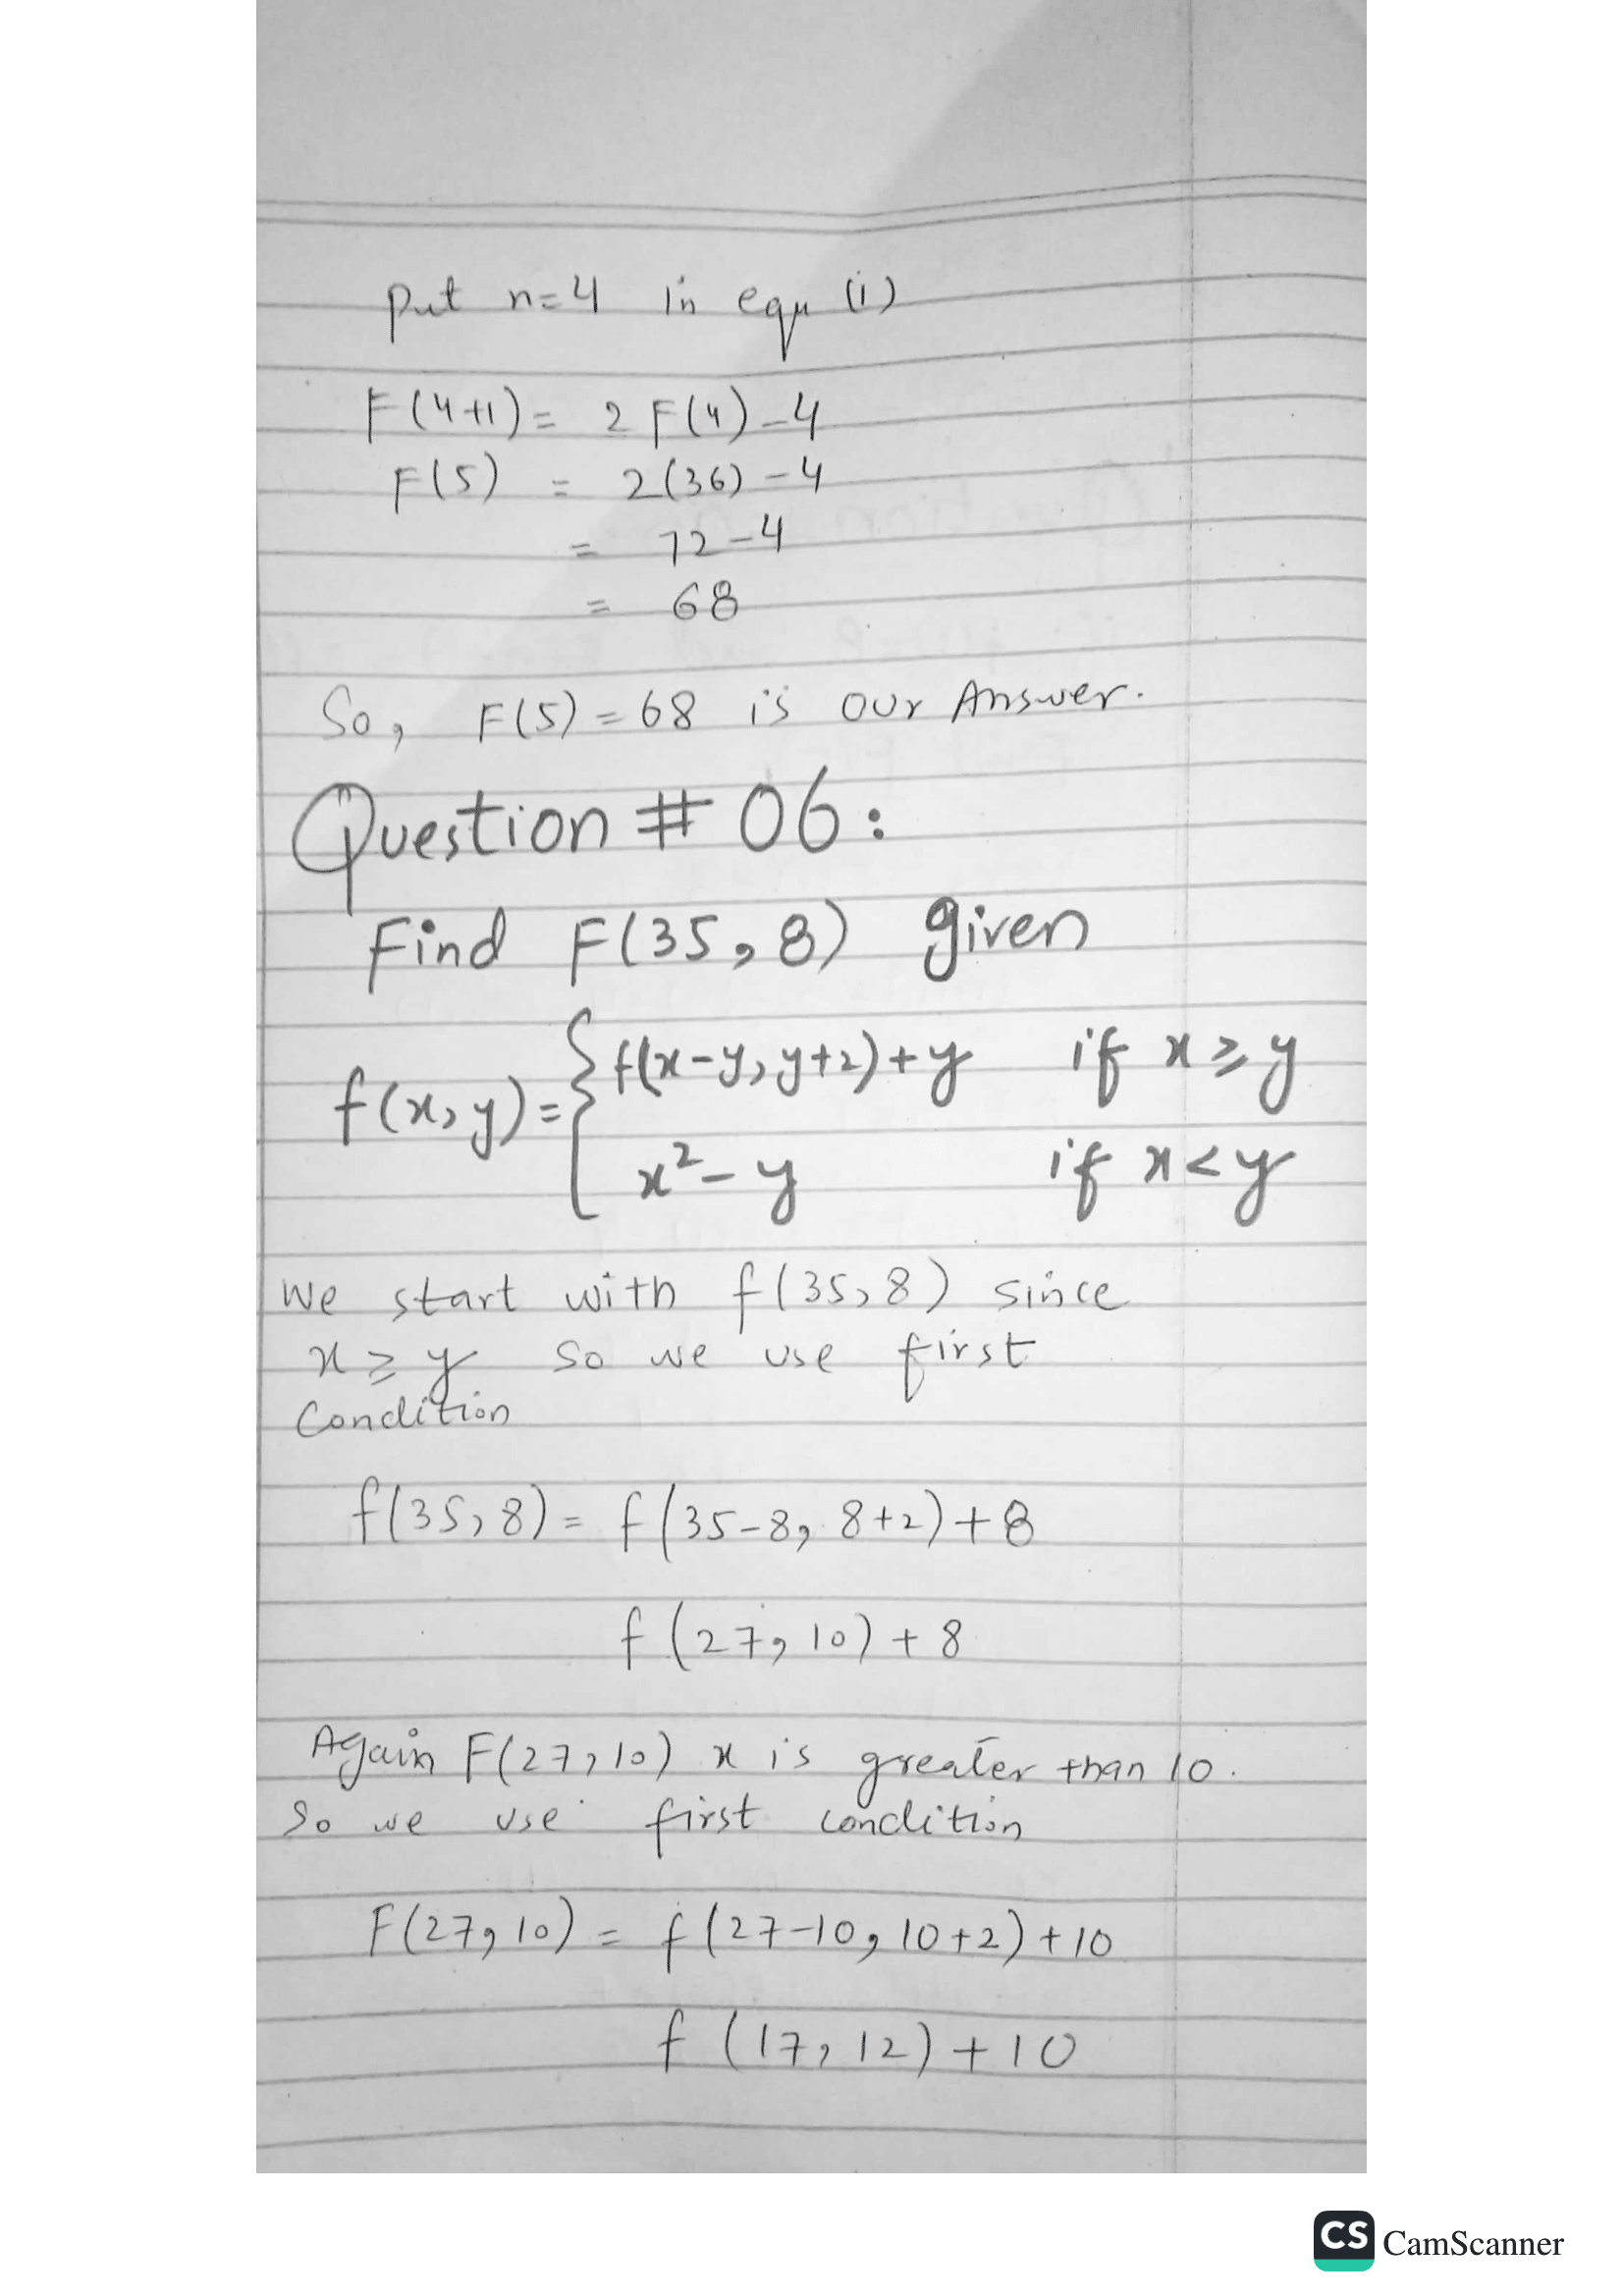 Put n=4 in equ (i)
F(4+1) = 2 F(4) - 4
F(5) = 2(36) - 4
= 72 - 4
= 68
So, F(5) = 68 is our Answer.
Question # 06:
Find F(35, 8) given
f(x, y) = { f(x-y, y+2) + y if x ≥ y
x² - y if x < y
We start with f(35, 8) since
x ≥ y so we use first
Condition
f(35, 8) = f(35-8, 8+2) + 8
f(27, 10) + 8
Again F(27, 10) x is greater than 10.
So we use first condition
F(27, 10) = f(27-10, 10+2) + 10
f(17, 12) + 10
CS CamScanner